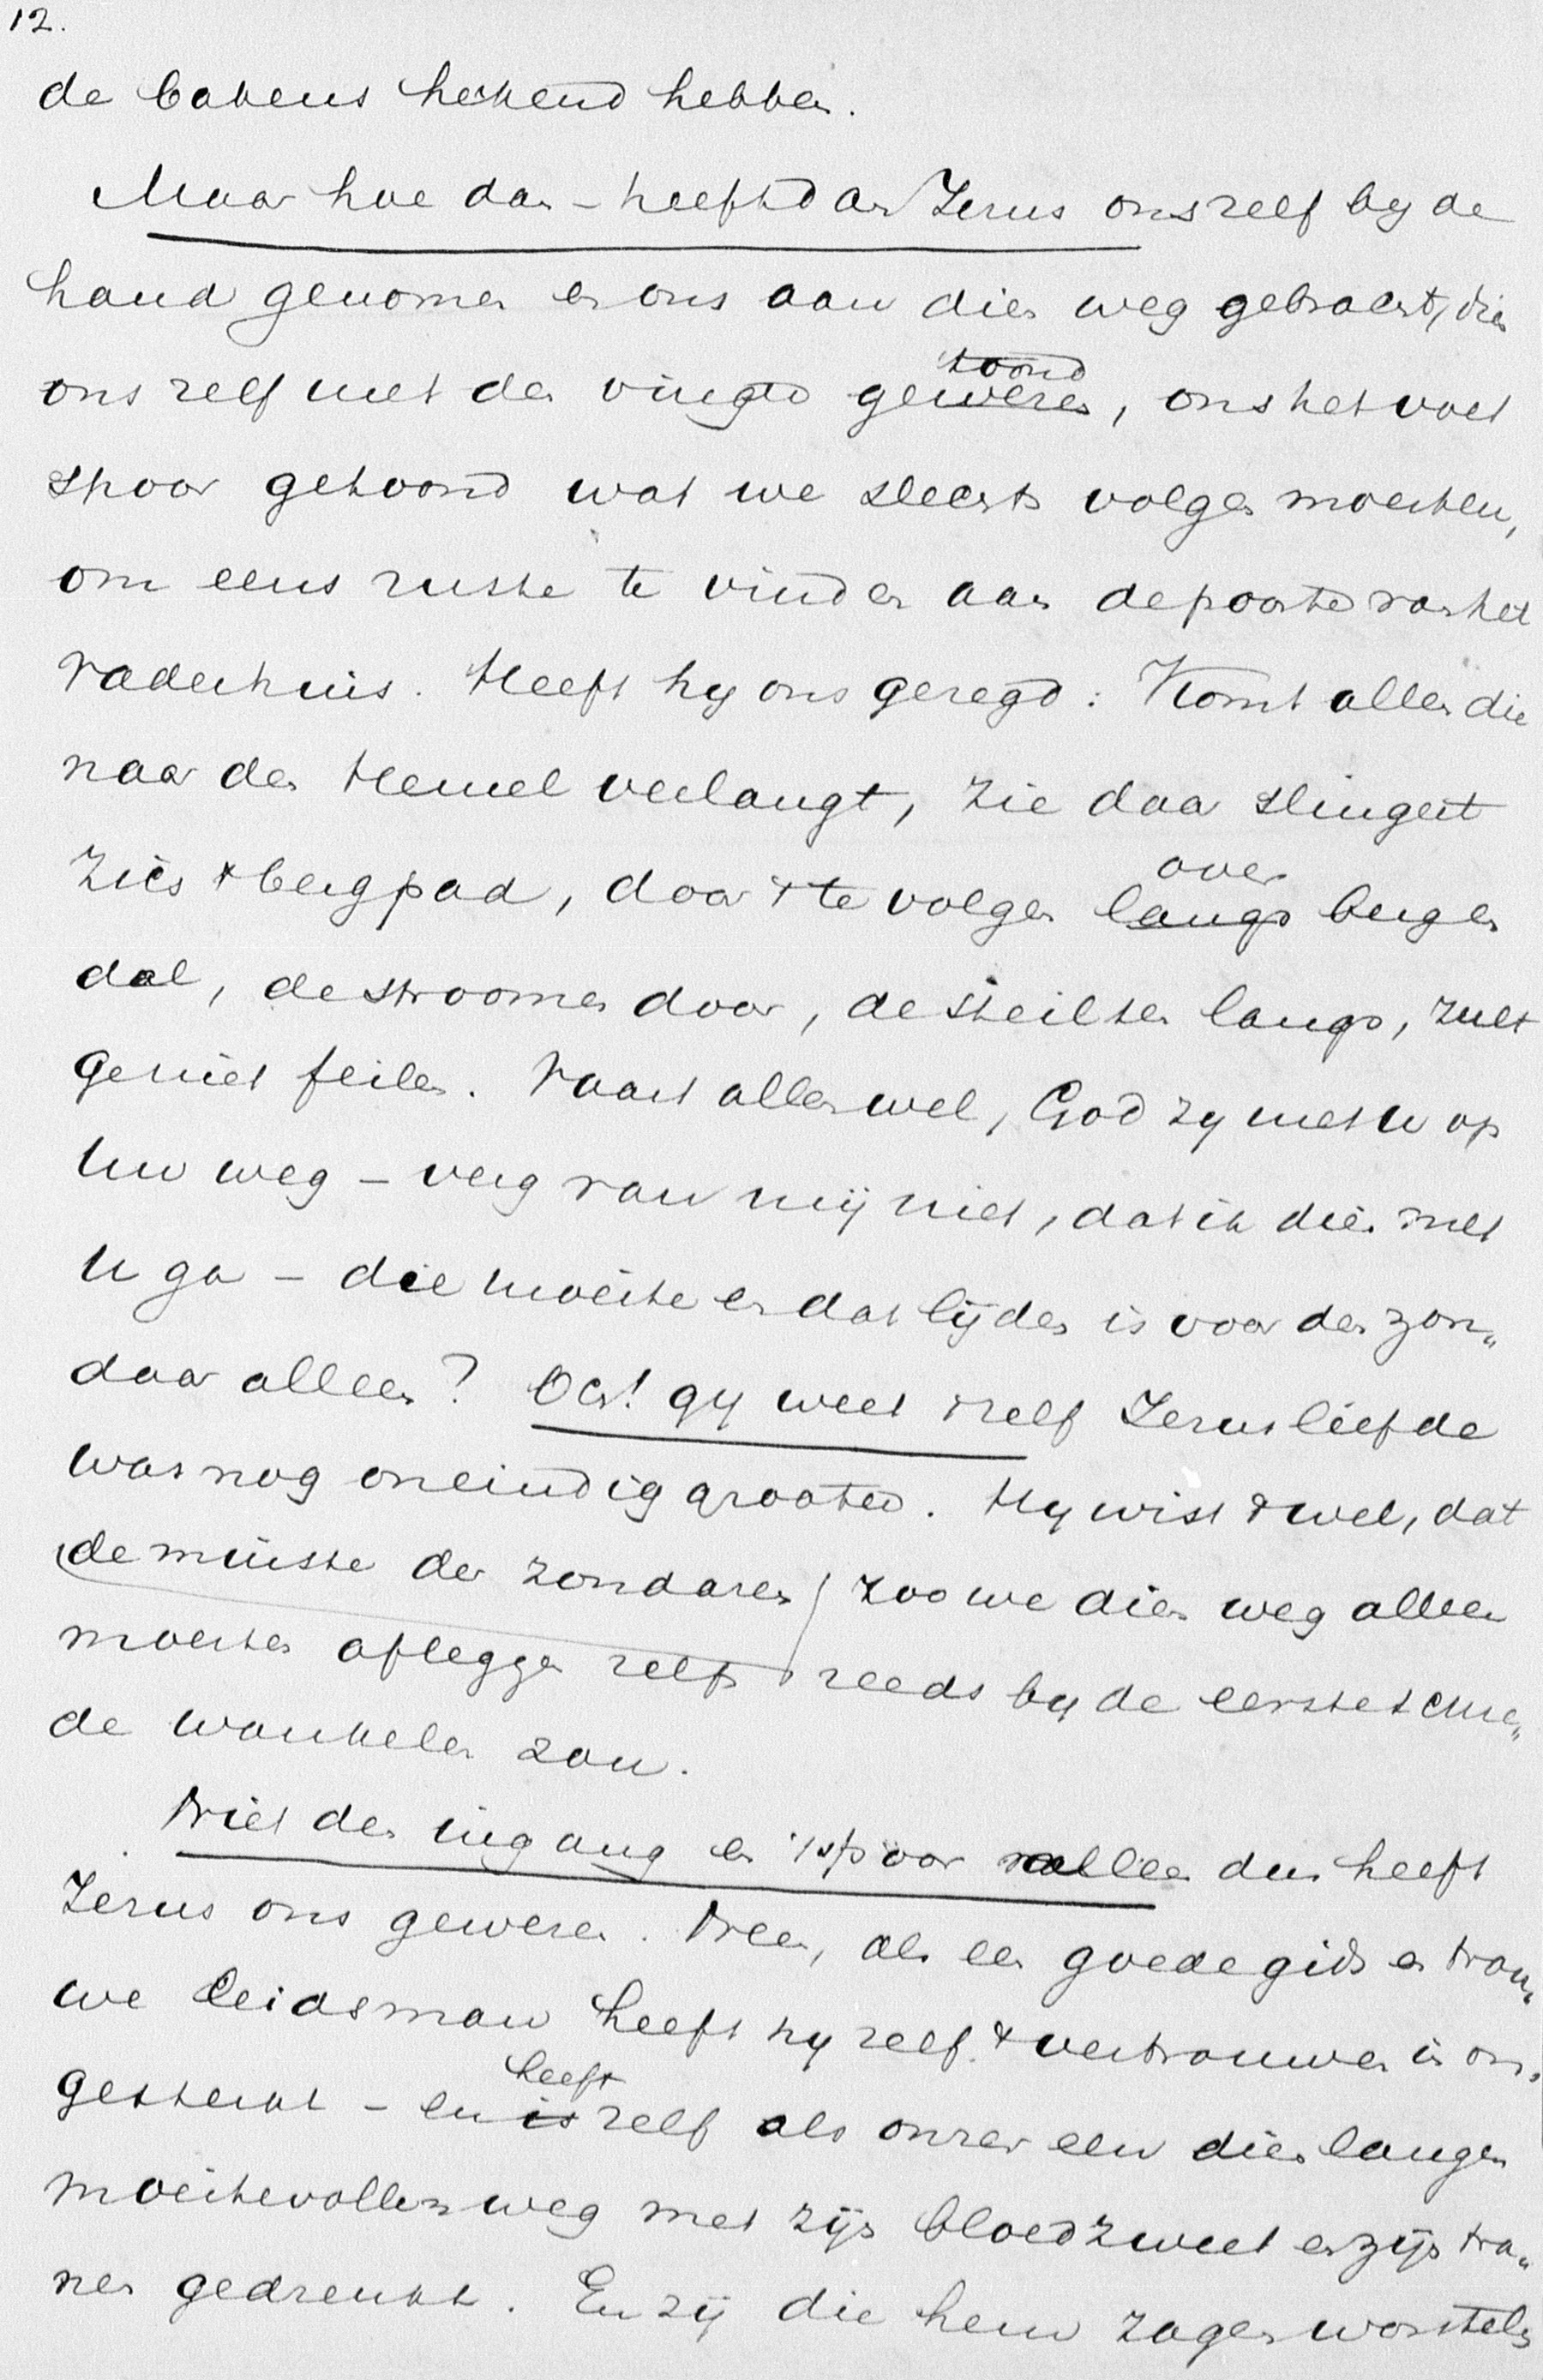 12.
de bakens hekend hebben.
Maar hoe dan – heeft dan Jezus ons zelf by de
hand genomen en ons aan dien weg gebracht, dien
toond
ons zelf met den vinger gewezen, ons het voet
spoor getoond wat we slechts volgen moesten,
om eens ruste te vinden aan de poorte van het
Vaderhuis. Heeft hy ons gezegd: Komt allen die
naar den Hemel verlangt, zie daar slingert
over
zich 't bergpad, door 't te volgen langs berg en
dal, de stroomen door, de steilten langs, zult
ge niet feilen. Vaart allen wel, God zy met U op
Uw weg – verg van mij niet, dat ik dien met
U ga – die moeite en dat lijden is voor den zon„
daar alleen? Och! gy weet 't zelf Jezus liefde
was nog oneindig grooter. Hy wist 't wel, dat
de minste der zondaren zoo we dien weg alleen
moesten afleggen zelfs reeds by de eerste schre„
de wankelen zou.
Niet den ingang en 't spoor alleen dus heeft
Jezus ons gewezen. Neen, als een goede gids en trou„
we Leidsman heeft hy zelf 't vertrouwen in ons
heeft
gesterkt – en is zelf als onzer een dien langen
moeitevollen weg met zijn bloedzweet en zijn tra„
nen gedrenkt. En zij die hem zagen worstelen